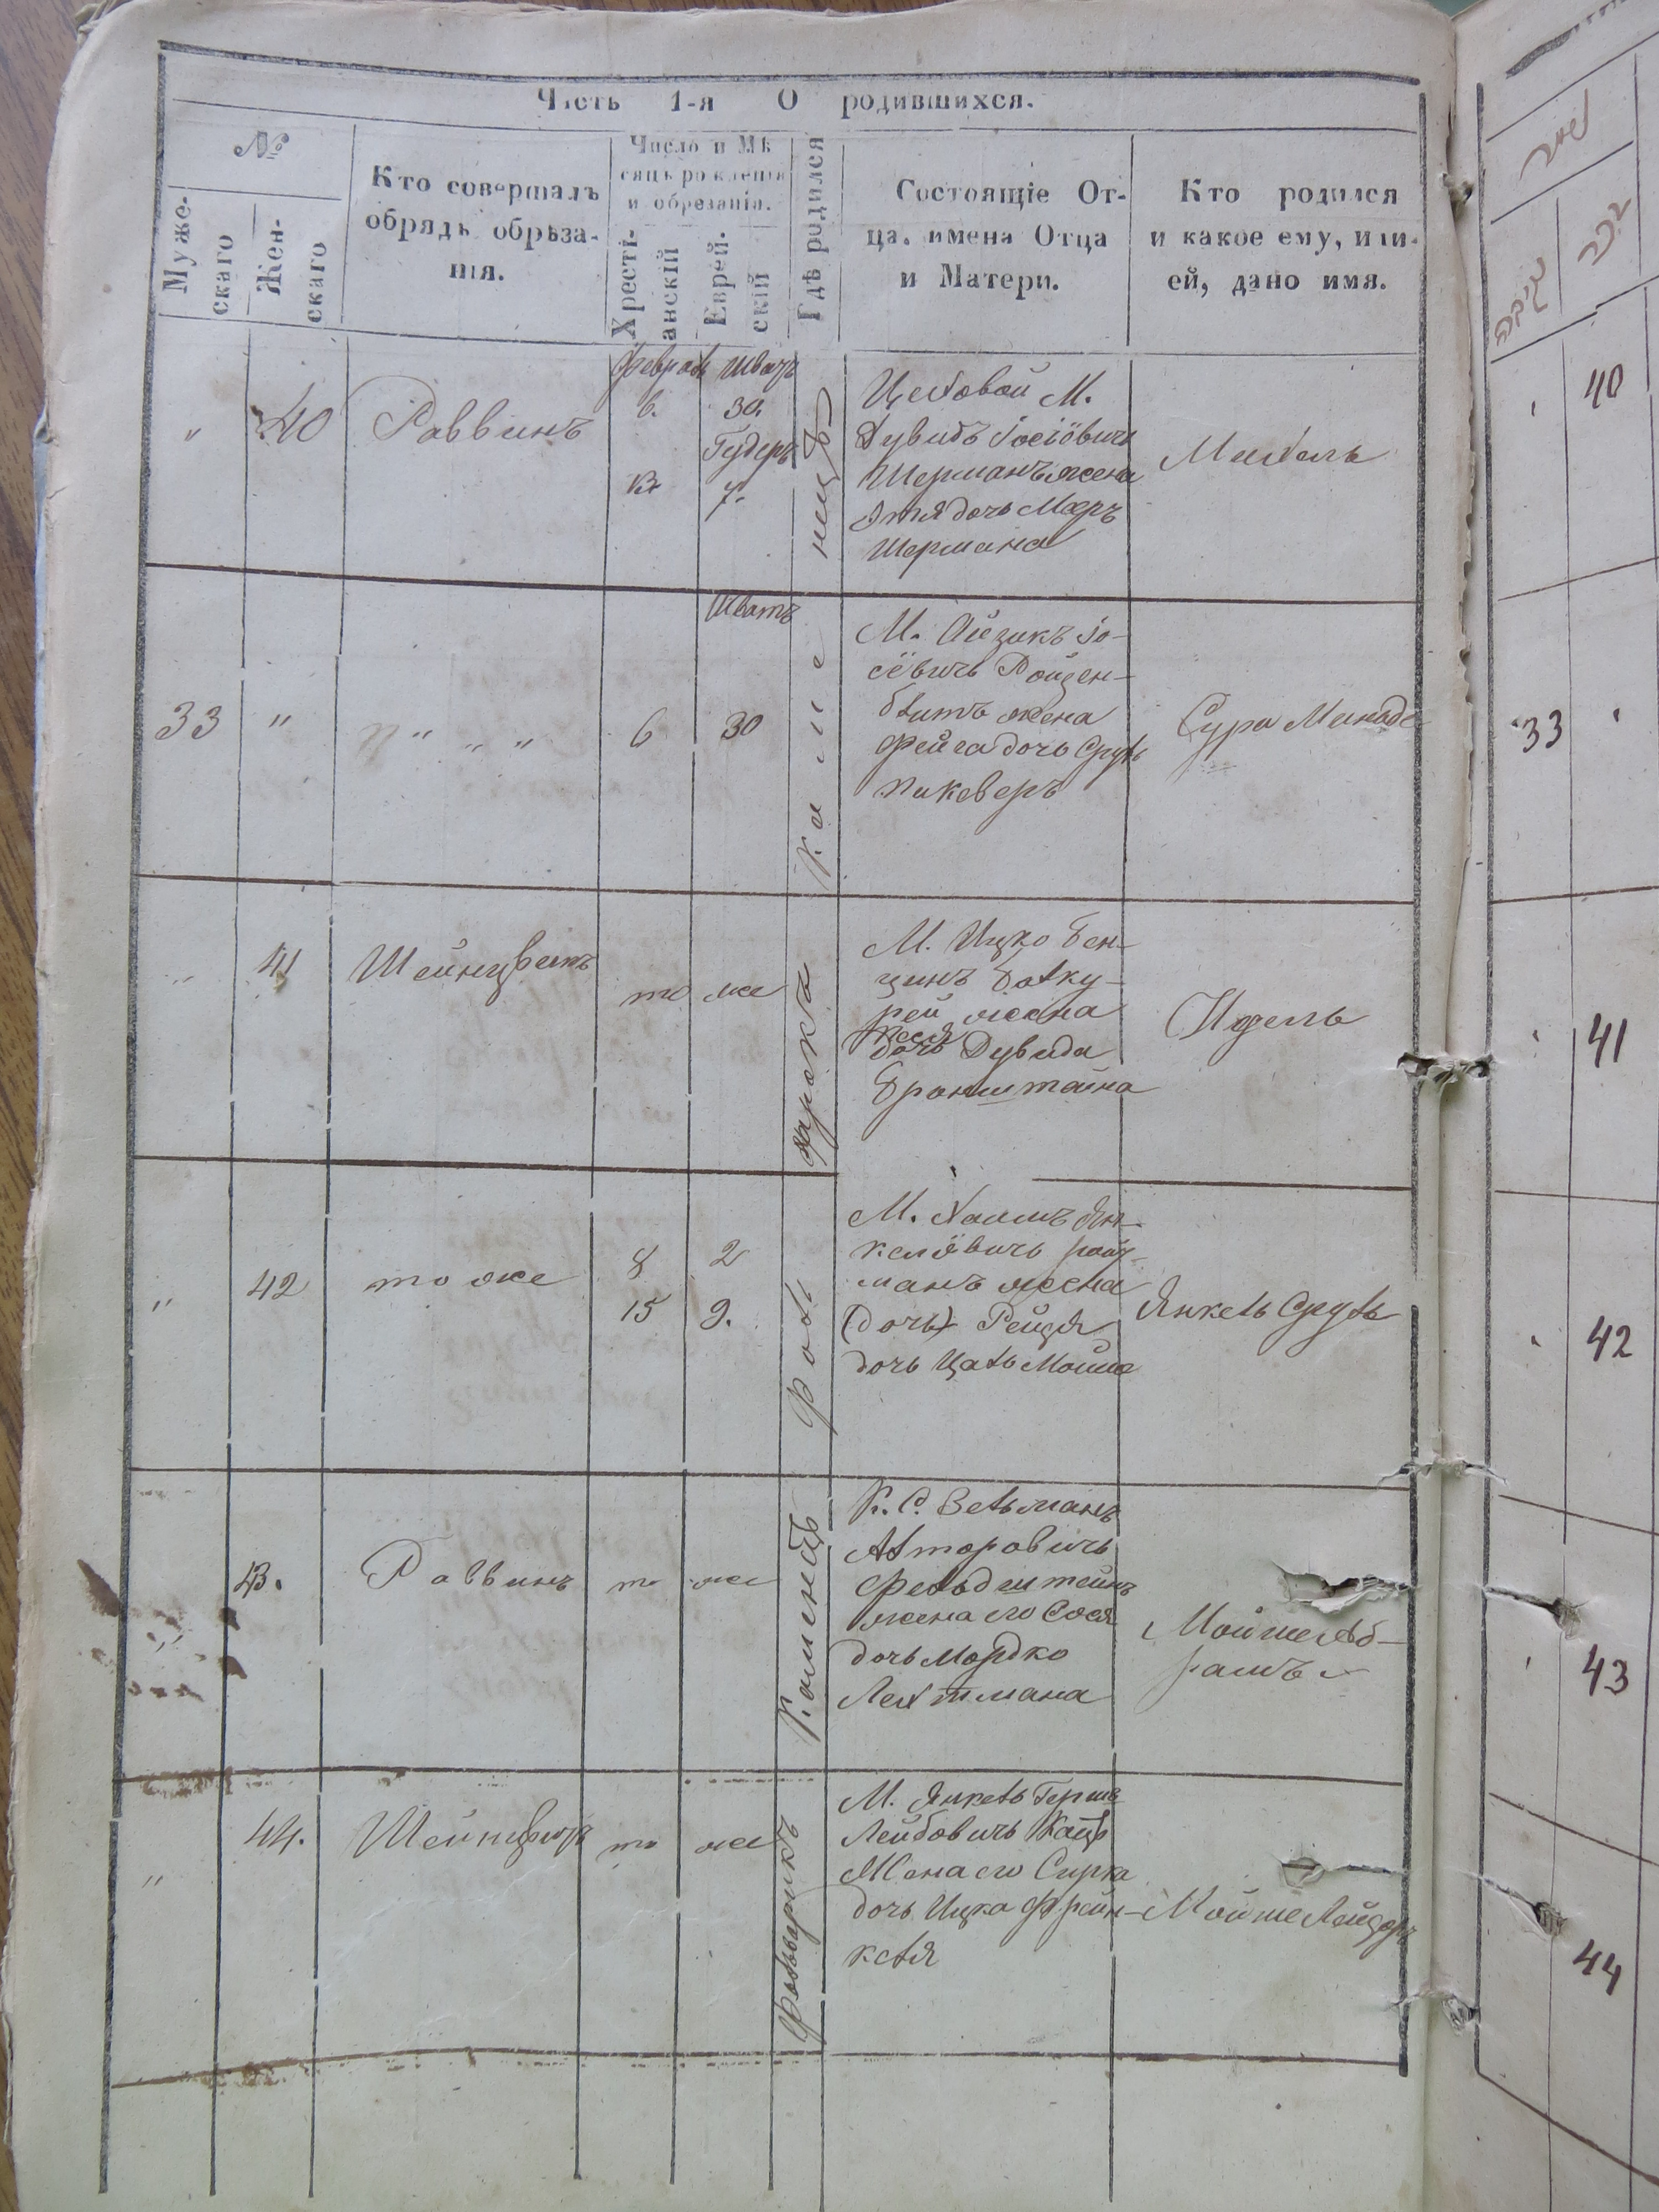 Часть 1-я О родившихся.
№
Муже-
скаго
Жен-
скаго
Кто совершалъ
обрядъ обрѣза-
нія.
Число и Мѣ
сяцъ рожденія
и обрезанія.
Хресті-
анскій
Еврей-
скій
Гдѣ родился
Состоящіе От-
ца, имена Отца
и Матери.
Кто родился
и какое ему, или
ей, дано имя.
" 40 Раввинъ
Февраль Шватъ
6. 30.
13 7.
Цеховой М.
Дувидъ Іосіовичъ
Шерманъ жена
Этя дочь Меръ
Шермана
Михель
Каменецъ
33 " " " "
Шватъ
6 30
М. Айзикъ Іо-
сёвичъ Ройзен-
блитъ жена
Фейга дочь Сруль
Пикеверъ
Сура Минде
" 41 Шейнцвитъ
то же
М. Ицко Бен-
ционъ Болку-
рей жена
Песя
дочь Дувида
Бронштейна
Идель
Фольварокъ
" 42 то же
8 2
15 9.
М. Хаимъ Ян-
келёвичъ Рой
манъ жена
(дочь) Рейзя
дочь Цаль Мойше
Янкель Сруль
43. Раввинъ то же
Каменецъ
К. С. Зельманъ
Алторовичъ
Фельдштейнъ
жена его Сося
дочь Мордко
Лехтмана
Мойше Аб-
рамъ
" 44. Шейнцвитъ то же
Фольварикъ
М. Янкель Гершъ
Лейбовичъ Кацъ
Жена его Сирка
дочь Ицка Френ-
келя
Мойше Лейзоръ
זכר
נקבה
40
33
41
42
43
44